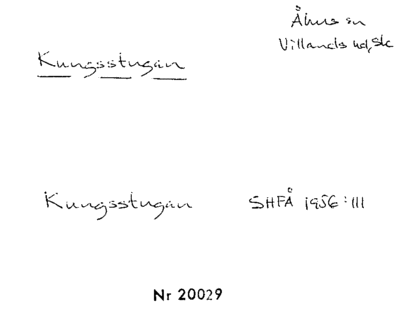 Åhus sn
Villands hd, Sk
Kungsstugan
Kungsstugan SHFÅ 1956:III
Nr 20029